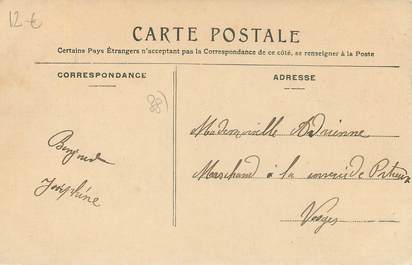 12-€
CARTE POSTALE
Certains Pays Étrangers n'acceptant pas la Correspondance de ce côté, se renseigner à la Poste
CORRESPONDANCE
ADRESSE
(88)
Mademoiselle Adrienne
Marchand à la
de
Vosges
Joséphine